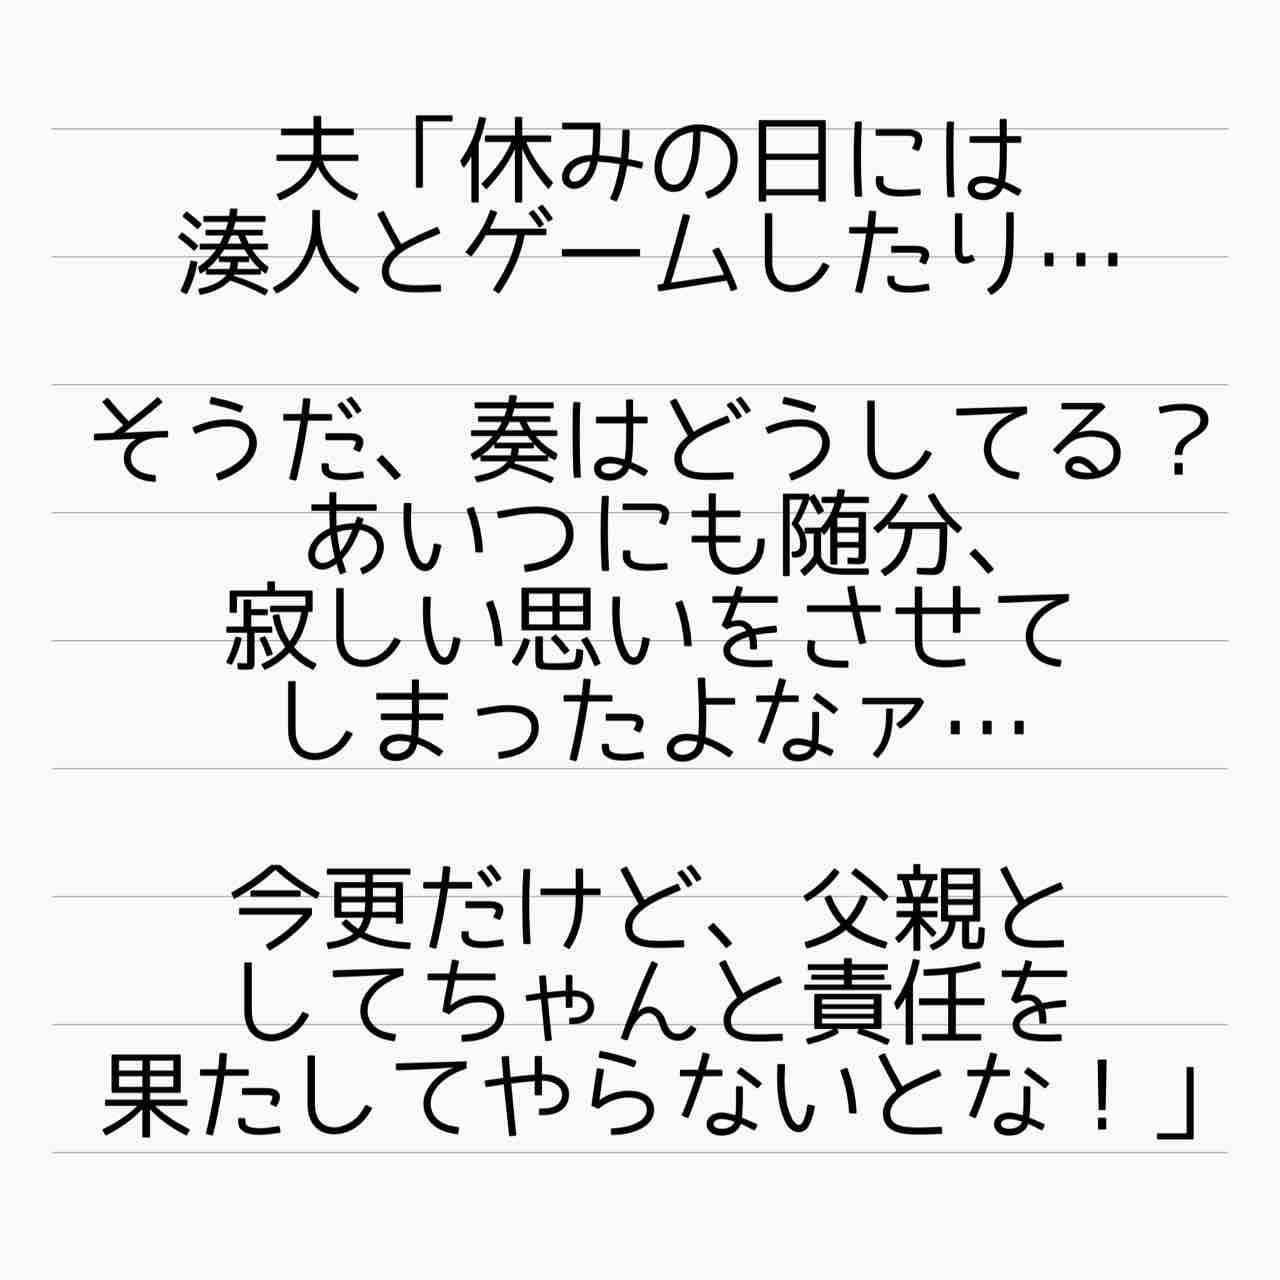 夫「休みの日には
湊人とゲームしたり…
そうだ、奏はどうしてる？
あいつにも随分、
寂しい思いをさせて
しまったよなァ…
今更だけど、父親と
してちゃんと責任を
果たしてやらないとな！」